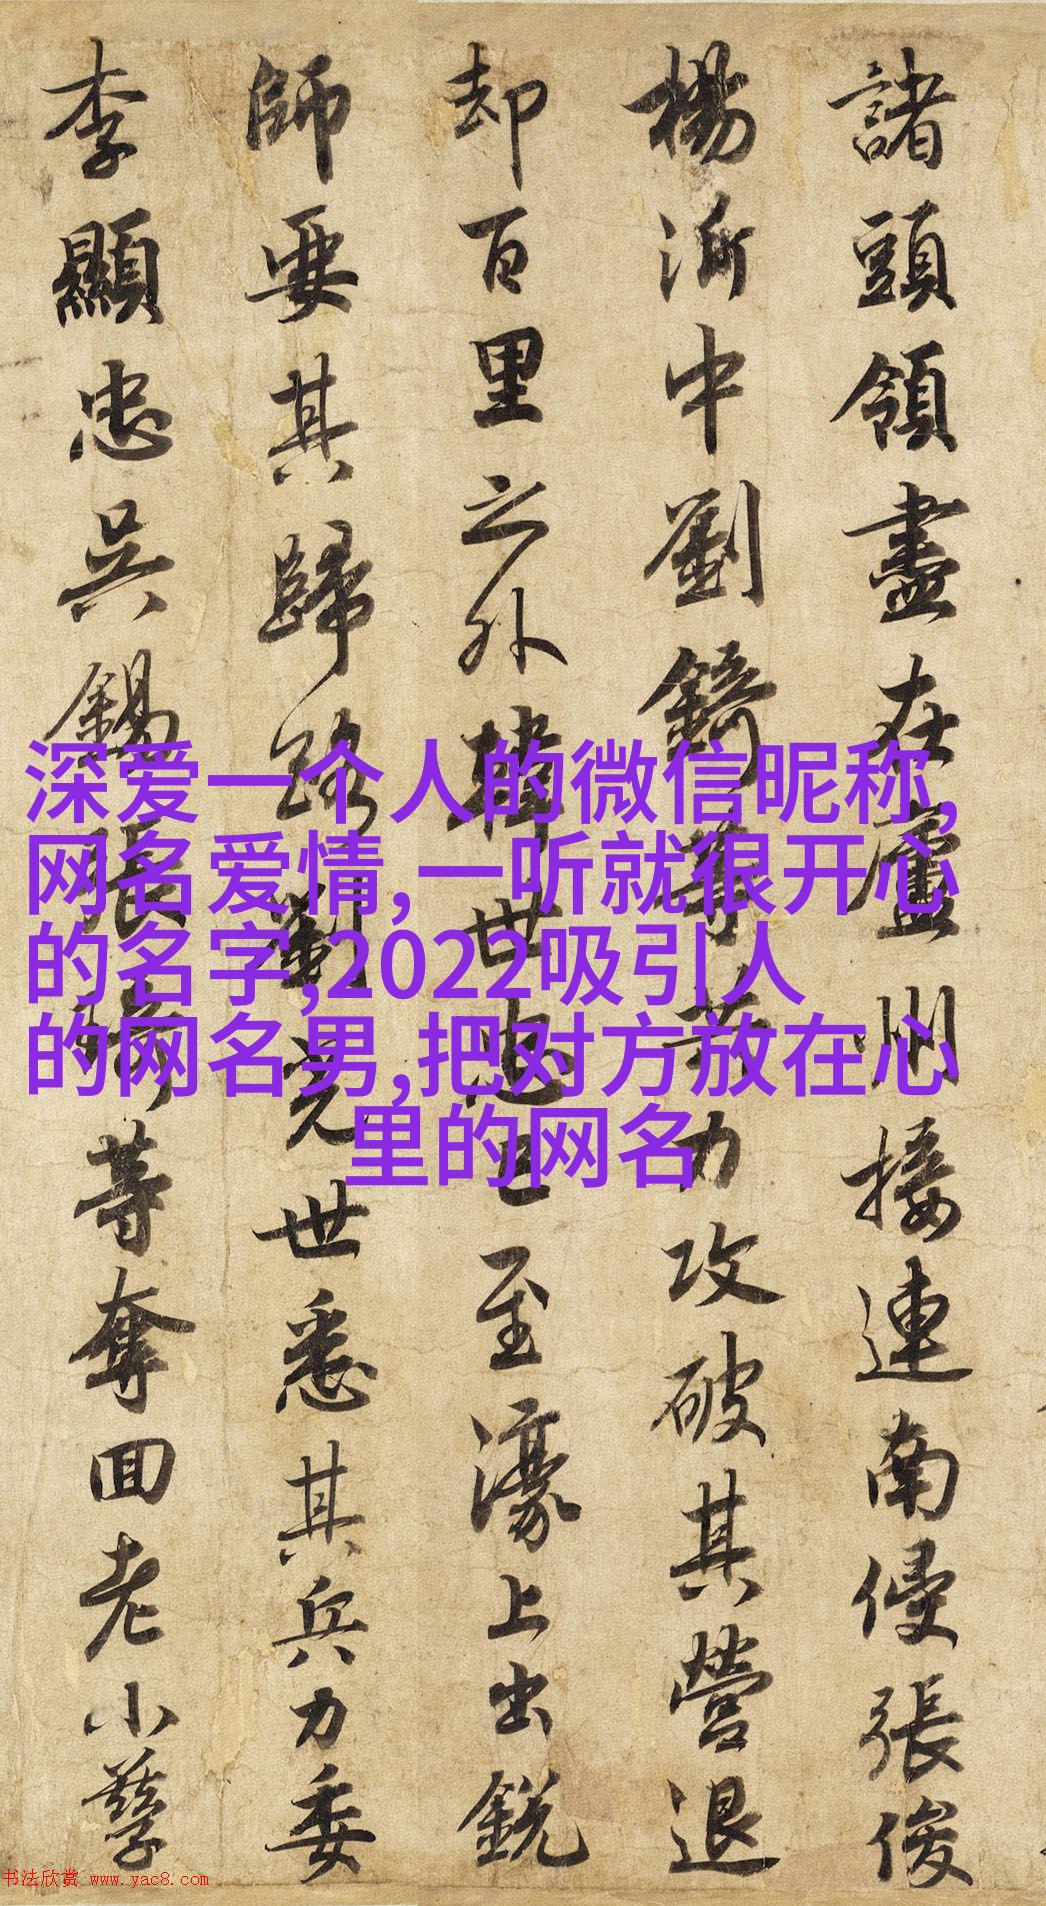 諸頭領盡在廬州接連南侵張俊
楊沂中劉錡等并力攻破其營退
却百里之外韓世忠已至濠上出銳
師要其歸路劉光世悉其兵力委
李顯忠吳錫張琦等奪回老小孳
深爱一个人的微信昵称,
网名爱情,一听就很开心
的名字,2022吸引人
的网名男,把对方放在心
里的网名
书法欣赏 www.yac8.com